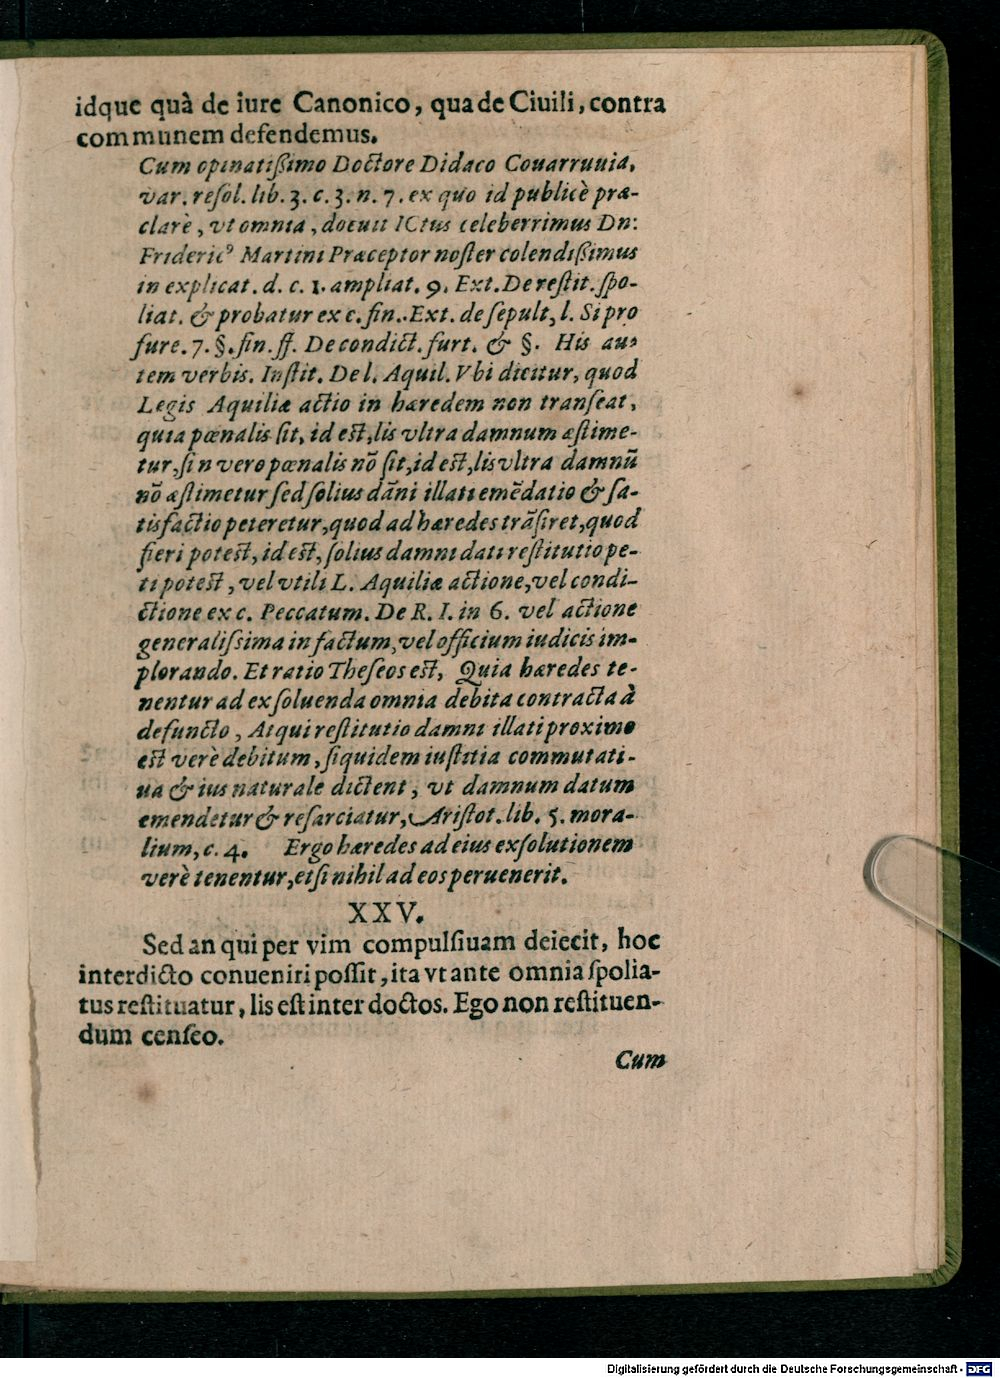 idque quà de iure Canonico, qua de Ciuili, contra
communem defendemus.
Cum opinatißimo Doctore Didaco Couarruuia,
var. resol. lib. 3. c. 3. n. 7. ex quo id publicè præ-
clarè, vt omnia, docuit ICtus celeberrimus Dn:
Frideric⁹ Martini Præceptor noster colendißimus
in explicat. d. c. 1. ampliat. 9. Ext. De restit. spo-
liat. & probatur ex c. fin. Ext. de sepult, l. Si pro
fure. 7. §. fin. ff. De condict. furt. & §. His au-
tem verbis. Instit. De l. Aquil. Vbi dicitur, quod
Legis Aquiliæ actio in hæredem non transeat,
quia pœnalis sit, id est, lis vltra damnum æstime-
tur, si n vero pœnalis nō sit, id est, lis vltra damnū
nō æstimetur sed solius dāni illati emēdatio & sa-
tisfactio peteretur, quod ad hæredes trāsiret, quod
fieri potest, id est, solius damni dati restitutio pe-
ti potest, vel vtili L. Aquiliæ actione, vel condi-
ctione ex c. Peccatum. De R. I. in 6. vel actione
generalissima in factum, vel officium iudicis im-
plorando. Et ratio Theseos est, Quia hæredes te-
nentur ad exsoluenda omnia debita contracta à
defuncto, Atqui restitutio damni illati proximo
est verè debitum, siquidem iustitia commutati-
ua & ius naturale dictent, vt damnum datum
emendetur & resarciatur, Aristot. lib. 5. mora-
lium, c. 4. Ergo hæredes ad eius exsolutionem
verè tenentur, etsi nihil ad eos peruenerit.
XXV.
Sed an qui per vim compulsiuam deiecit, hoc
interdicto conueniri possit, ita vt ante omnia spolia-
tus restituatur, lis est inter doctos. Ego non restituen-
dum censeo.
Cum
Digitalisierung gefördert durch die Deutsche Forschungsgemeinschaft - DFG